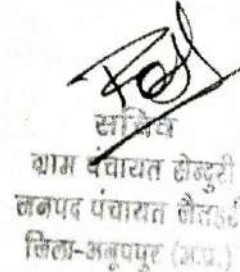 सचिव
ग्राम पंचायत सेन्दुरी
जनपद पंचायत जैतहरी
जिला-अनूपपुर (म.प्र.)